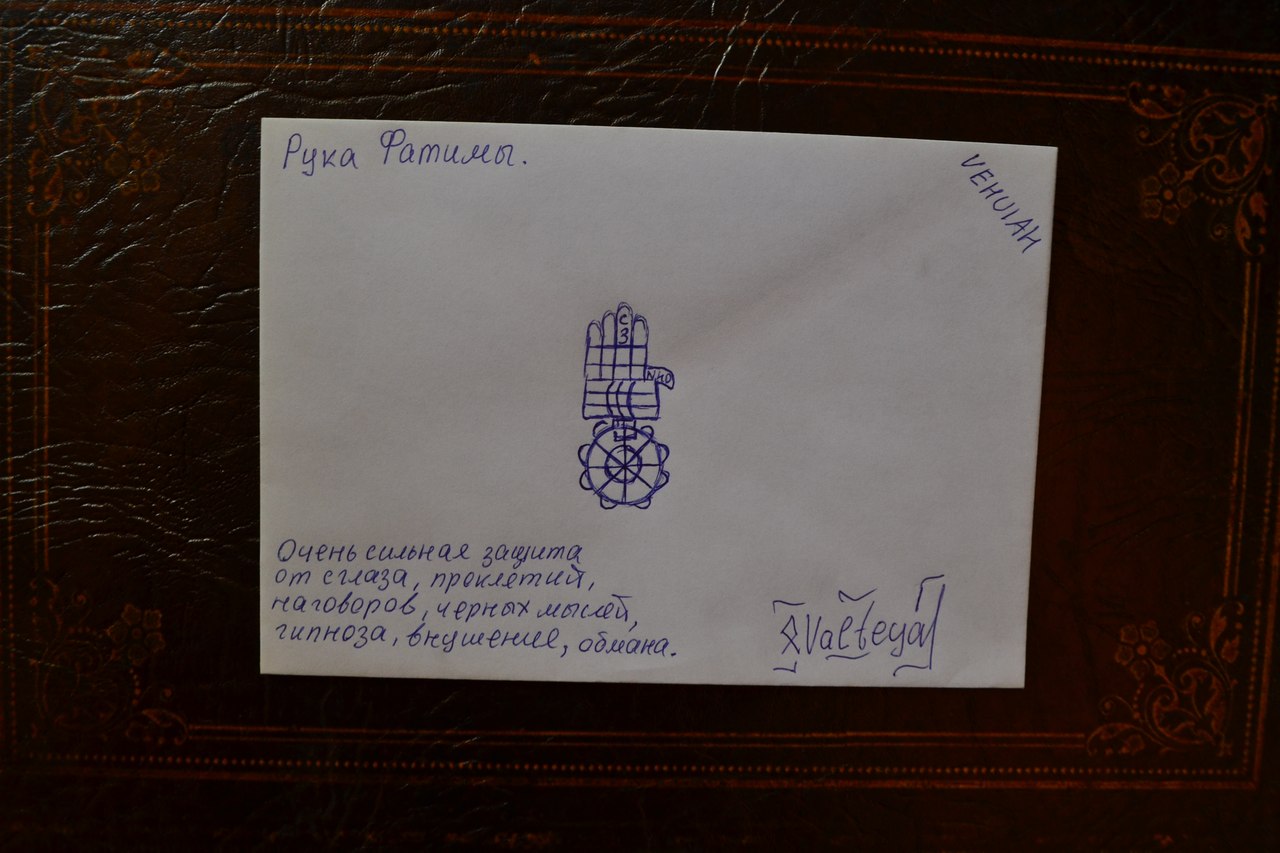 Рука Фатимы.
VEHUIAH
С
З
NHO
Очень сильная защита
от сглаза, проклятий,
наговоров, черных мыслей,
гипноза, внушение, обмана.
Valteya